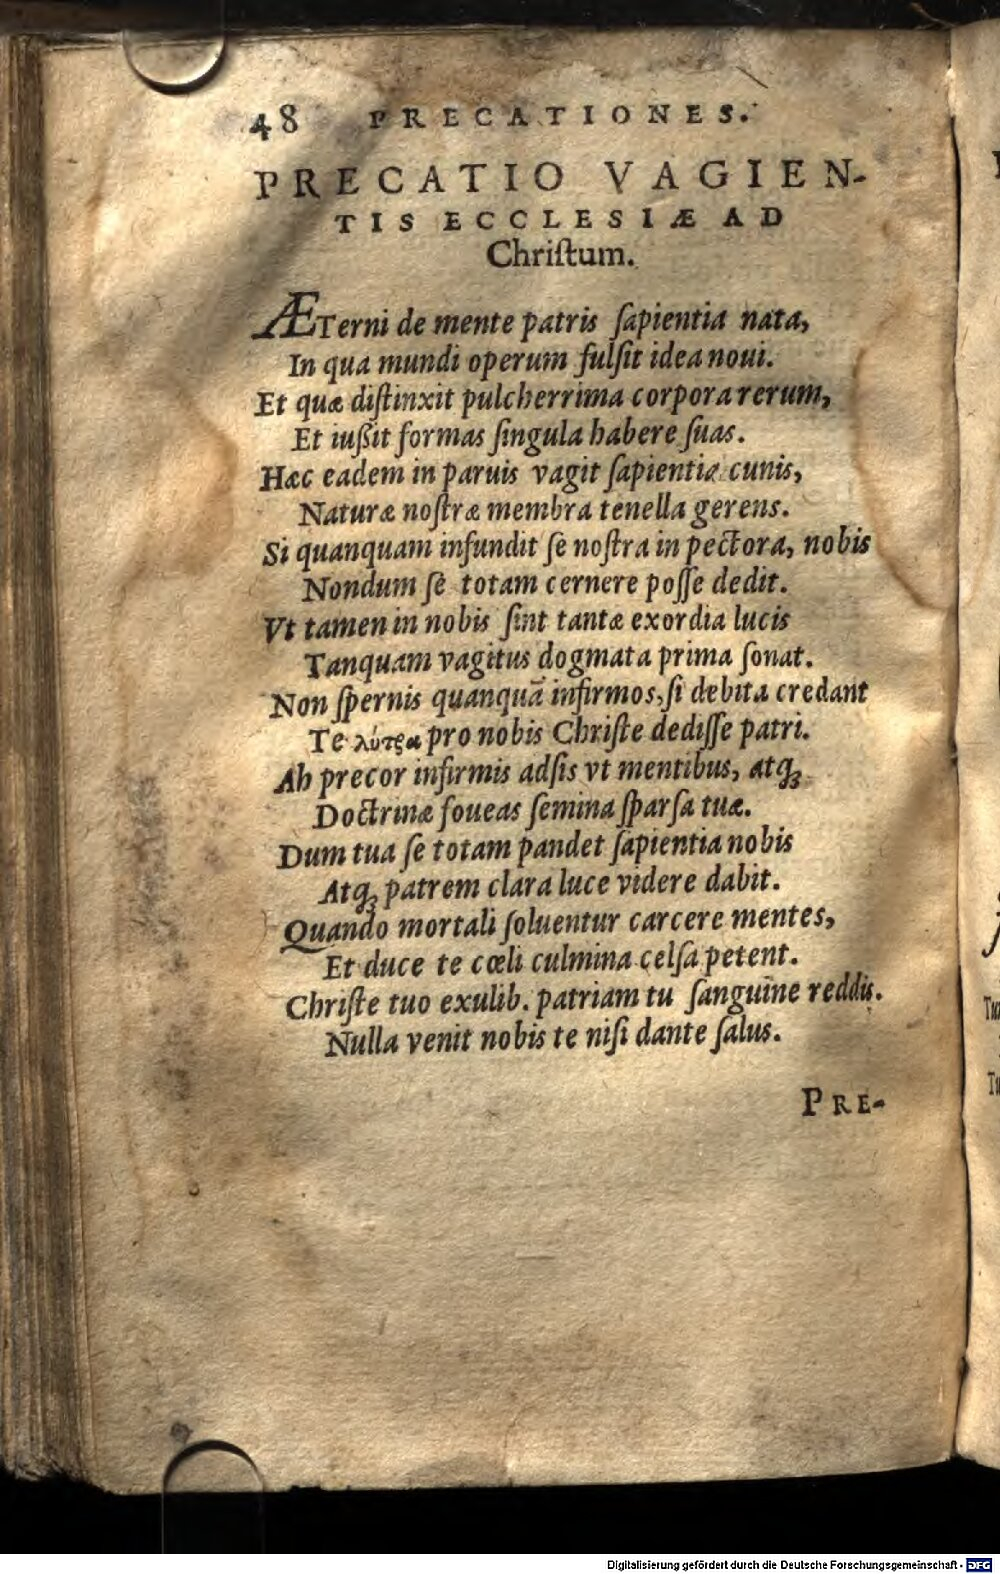 48 PRECATIONES.
PRECATIO VAGIEN-
TIS ECCLESIÆ AD
Chriſtum.
ÆTerni de mente patris ſapientia nata,
In qua mundi operum fulſit idea noui.
Et quæ diſtinxit pulcherrima corpora rerum,
Et iußit formas ſingula habere ſuas.
Hæc eadem in paruis vagit ſapientia cunis,
Naturæ noſtræ membra tenella gerens.
Si quanquam infundit ſe noſtra in pectora, nobis
Nondum ſe totam cernere poſſe dedit.
Vt tamen in nobis ſint tantæ exordia lucis
Tanquam vagitus dogmata prima ſonat.
Non ſpernis quanquā infirmos, ſi debita credant
Te λύτρα pro nobis Chriſte dediſſe patri.
Ah precor infirmis adſis vt mentibus, atq;
Doctrinæ foueas ſemina ſparſa tuæ.
Dum tua ſe totam pandet ſapientia nobis
Atq; patrem clara luce videre dabit.
Quando mortali ſoluentur carcere mentes,
Et duce te cœli culmina celſa petent.
Chriſte tuo exulib. patriam tu ſanguine reddis.
Nulla venit nobis te niſi dante ſalus.
PRE-
Tu
Digitalisierung gefördert durch die Deutsche Forschungsgemeinschaft - DFG